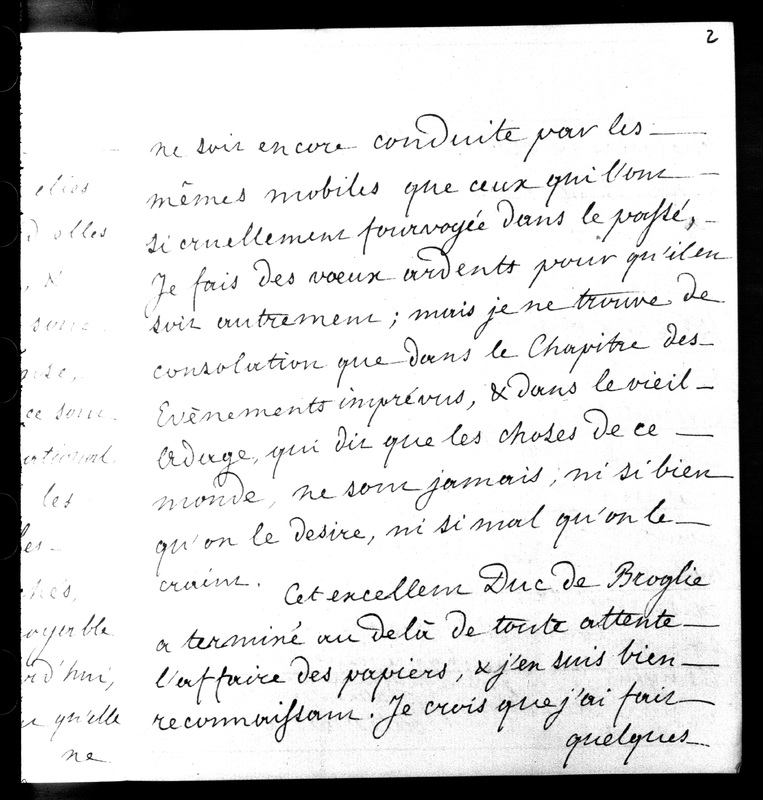 2
ne soit encore conduite par les
mêmes mobiles que ceux qui l'ont
si cruellement fourvoyée dans le passé,
Je fais des vœux ardents pour qu'il en
soit autrement ; mais je ne trouve de
consolation que dans le Chapitre des
Evènements imprévus, & dans le vieil
Adage, qui dit que les choses de ce
monde, ne sont jamais, ni si bien
qu'on le desire, ni si mal qu'on le
craint.
Cet excellent Duc de Broglie
a terminé au delà de toute attente
l'affaire des papiers, & j'en suis bien
reconnaissant. Je crois que j'ai fait
quelques
elles
&
sont
ce sont
les
les
qu'elle
ne